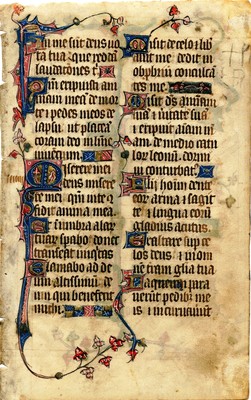 In me sunt deus uo
ta tua que redda
laudationes t
Qm eripuisti a
niam mea de mor
te et pedes meos de
lapsu ut placea
coram deo in lumine
uiuentium
Miserere mei
deus misere
re mei qm in te con
fidit anima mea
Et in umbra alar
tuar spabo donec
transeat iniqtas
Clamabo ad de
um altissimu de
um qui benefecit
michi
Misit de celo et lib
auit me dedit in
obpbrium conculca
tes me
Misit ds miam sua
et ueritate sua
et eripuit aiam m
am de medio catu
lor leonu dormi
ui conturbat
Filii hoim dentes
eor arma et sagit
te et lingua eor
gladius acutus
Exaltare sup ce
los deus et in om
nem tram glia tua
Laqueum para
uerut pedib me
is et incuruauert